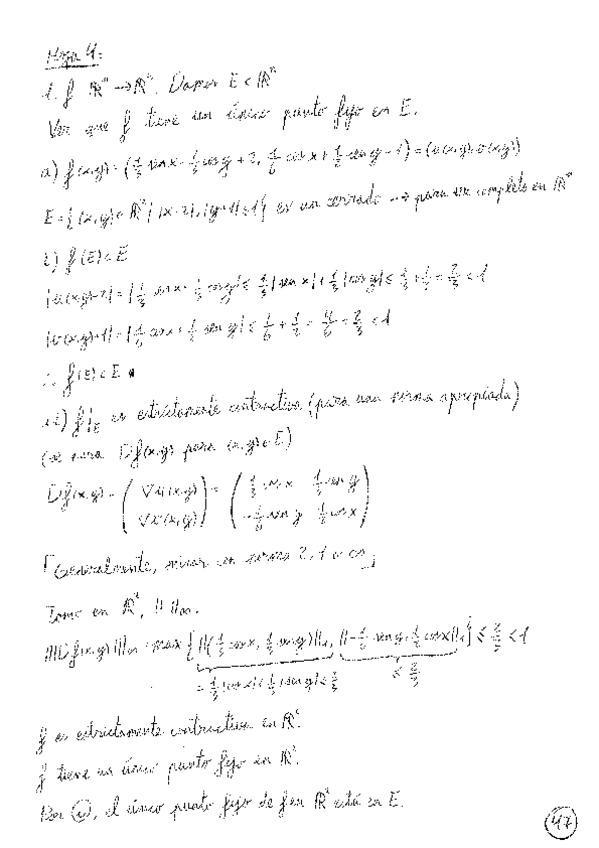 Hoja 4:
1. f: ℝⁿ → ℝⁿ. Damos E ⊂ ℝⁿ
Ver que f tiene un único punto fijo en E.
a) f(x,y) = ( sen x - cos y + 2, 1/6 cos x + 1/2 sen y - 1) = (u(x,y), v(x,y))
E = {(x,y) ∈ ℝ² | |x-2|, |y+1| ≤ 1} es un cerrado → para ser completo en ℝⁿ
i) f(E) ⊂ E
|u(x,y)-2| = | sen x - cos y| ≤ |sen x| + |cos y| ≤ = 2/3 < 1
|v(x,y)+1| = |1/6 cos x + 1/2 sen y| ≤ 1/6 + 1/2 = 4/6 = 2/3 < 1
∴ f(E) ⊂ E
ii) f|_E es estrictamente contractiva (para una norma apropiada)
(se mira Df(x,y) para (x,y) ∈ E)
Df(x,y) = (∇u(x,y) ∇v(x,y)) = ( cos x sen y - sen y cos x)
⌈Generalmente, mirar con norma 2, 1 o ∞⌋
Tomo en ℝ², || ||∞.
|||Df(x,y)|||∞ = max {||( cos x, sen y)||₁, ||- sen y, cos x||₁} ≤ 2/3 < 1
= |cos x| + |sen y| ≤ 2/3 ≤ 2/3
f es estrictamente contractiva en ℝ².
f tiene un único punto fijo en ℝ².
Por (i), el único punto fijo de f en ℝ² está en E.
47